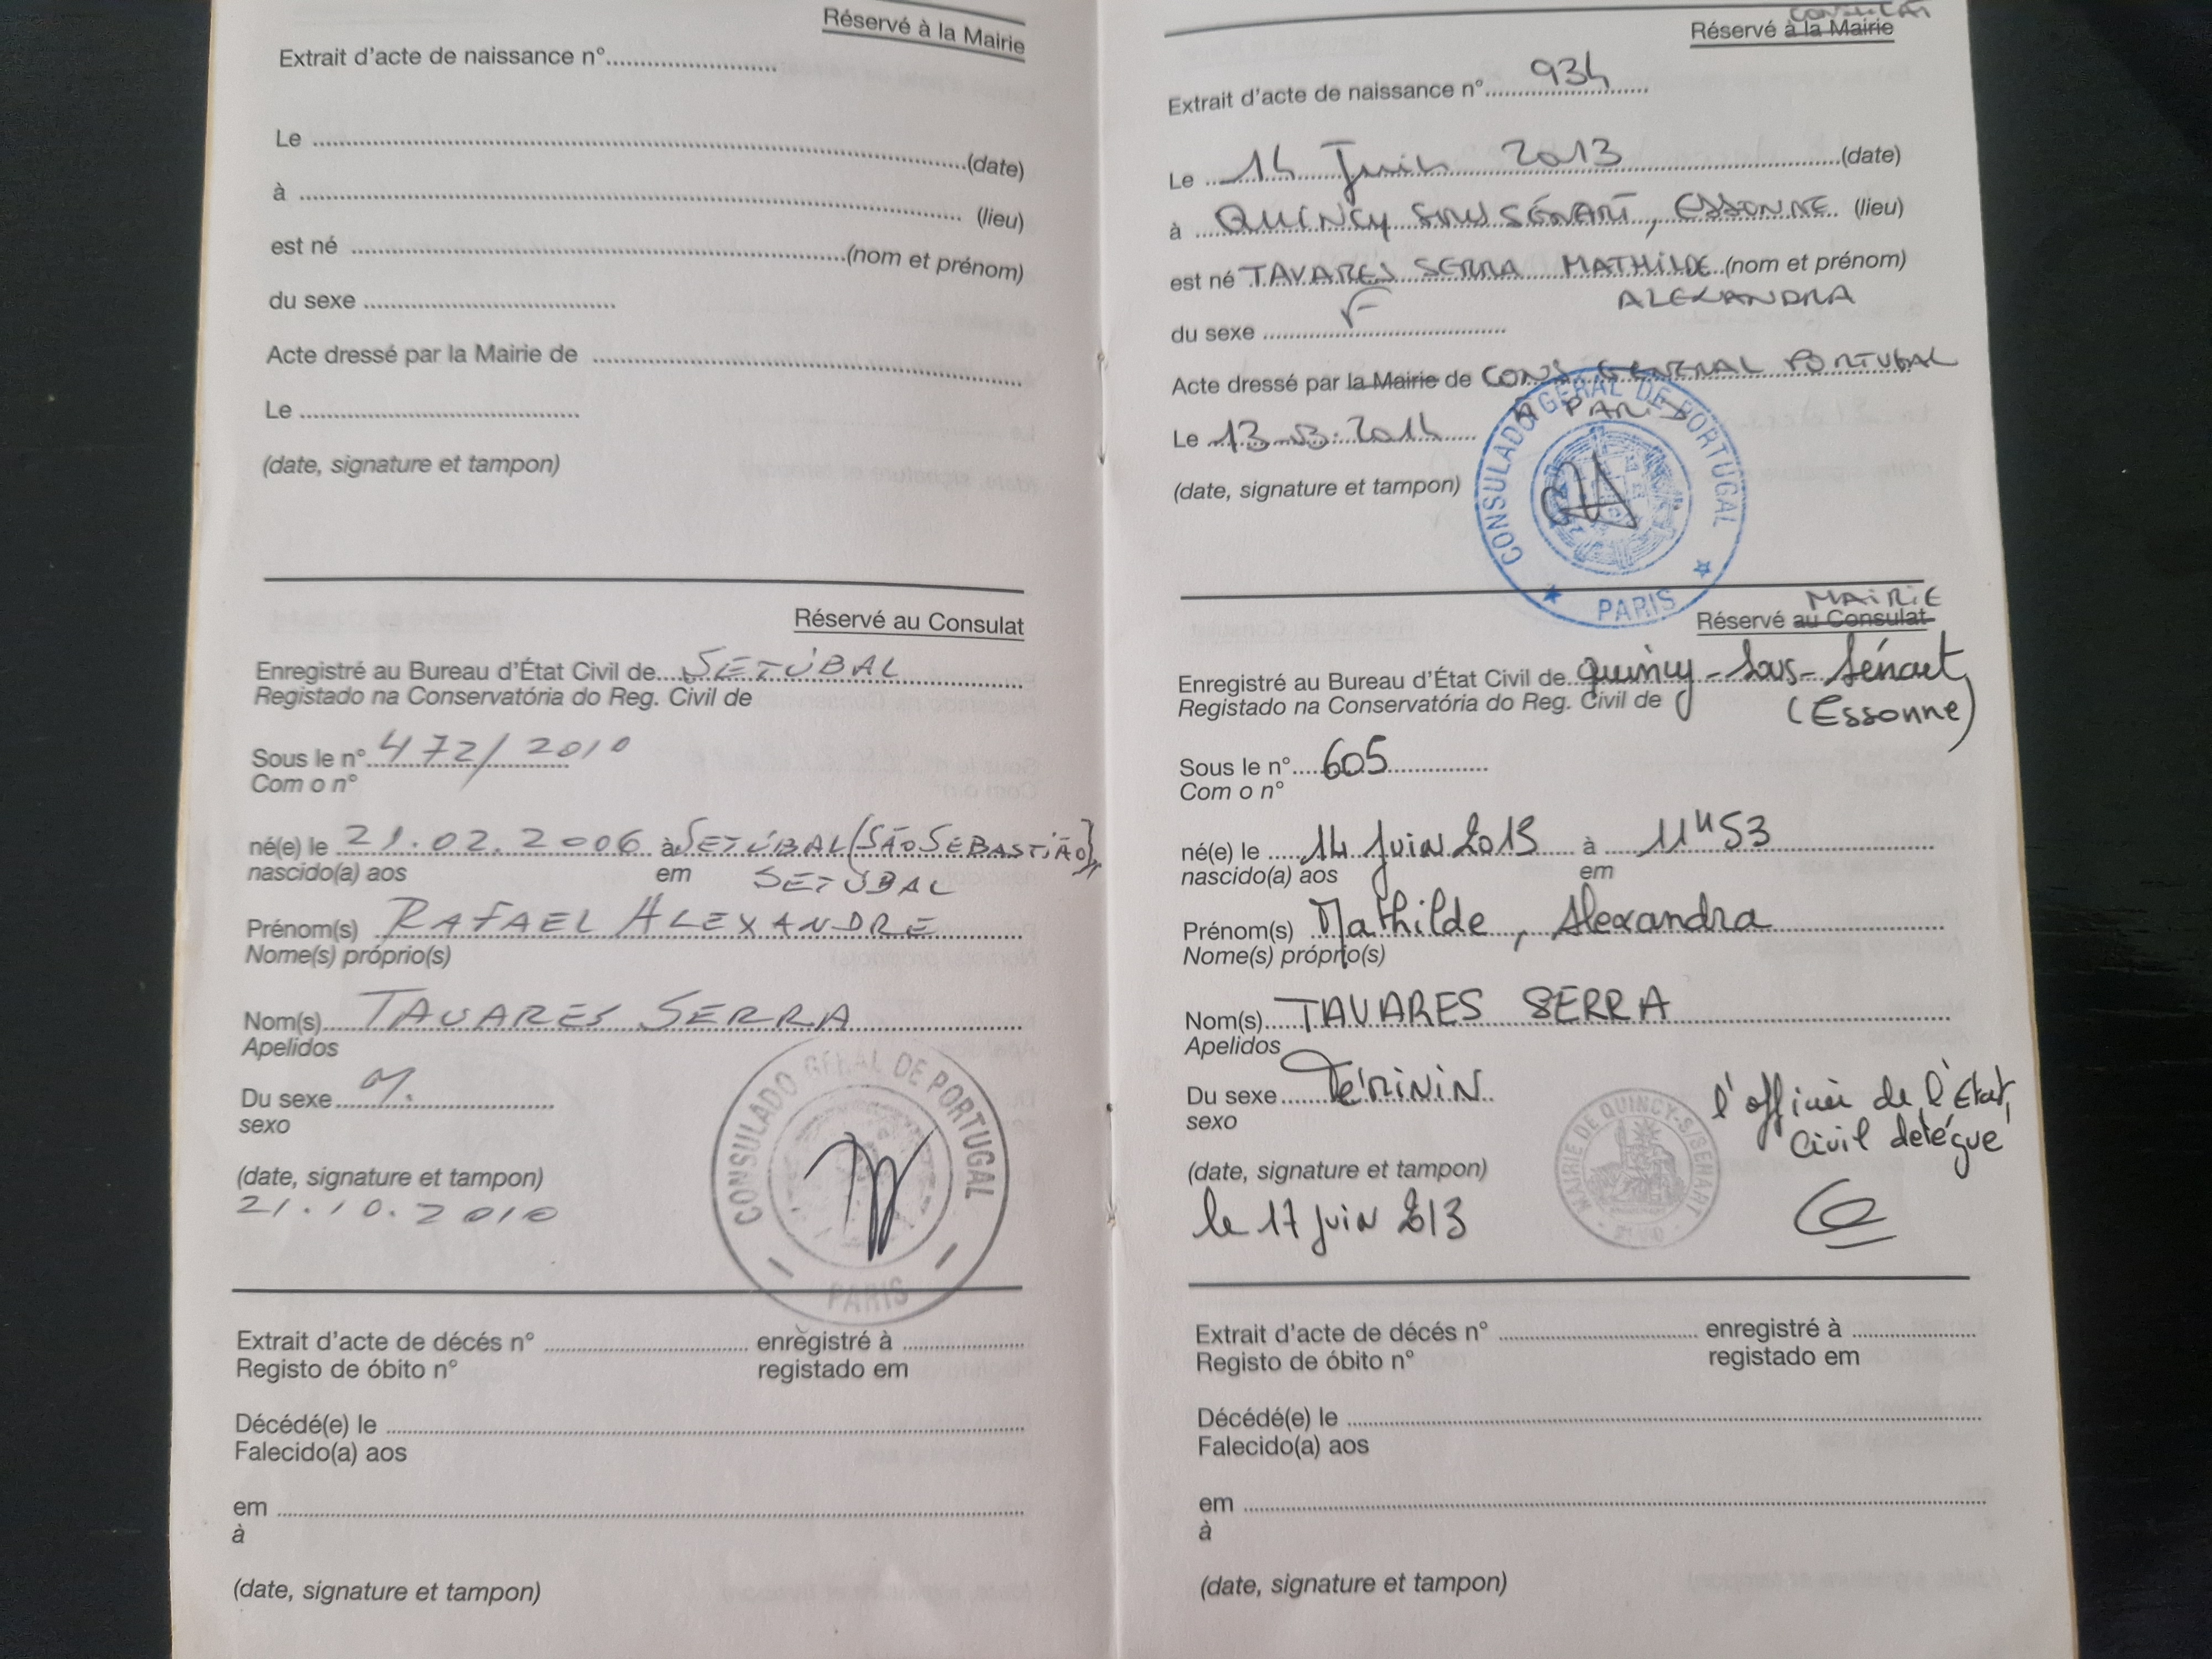 Réservé à la Mairie
Extrait d'acte de naissance n°
Le (date)
à (lieu)
est né (nom et prénom)
du sexe
Acte dressé par la Mairie de
Le
(date, signature et tampon)
Réservé au Consulat
Enregistré au Bureau d'État Civil de SETÚBAL
Registado na Conservatória do Reg. Civil de
Sous le n° 472/2010
Com o n°
né(e) le 21.02.2006 à SETÚBAL (SÃO SEBASTIÃO),
nascido(a) aos em SETÚBAL
Prénom(s) RAFAEL ALEXANDRE
Nome(s) próprio(s)
Nom(s) TAVARES SERRA
Apelidos
Du sexe M.
sexo
(date, signature et tampon)
21.10.2010
CONSULADO GERAL DE PORTUGAL
PARIS
Extrait d'acte de décés n° enregistré à
Registo de óbito n° registado em
Décédé(e) le
Falecido(a) aos
em
à
(date, signature et tampon)
CONSULAT
Réservé à la Mairie
Extrait d'acte de naissance n° 934
Le 14 Juin 2013 (date)
à QUINCY SOUS SÉNART, ESSONNE (lieu)
est né TAVARES SERRA MATHILDE (nom et prénom)
ALEXANDRA
du sexe F
Acte dressé par la Mairie de CONS. GENERAL PORTUGAL
À PARIS
Le 13.03.2014
(date, signature et tampon)
CONSULADO GERAL DE PORTUGAL
PARIS
MAIRIE
Réservé au Consulat
Enregistré au Bureau d'État Civil de Quincy-Sous-Sénart
Registado na Conservatória do Reg. Civil de (Essonne)
Sous le n° 605
Com o n°
né(e) le 14 Juin 2013 à 11H53
nascido(a) aos em
Prénom(s) Mathilde, Alexandra
Nome(s) próprio(s)
Nom(s) TAVARES SERRA
Apelidos
Du sexe Féminin
sexo
l'officier de l'État
Civil délégué
(date, signature et tampon)
le 17 juin 2013
MAIRIE DE QUINCY-S/SENART
Extrait d'acte de décés n° enregistré à
Registo de óbito n° registado em
Décédé(e) le
Falecido(a) aos
em
à
(date, signature et tampon)